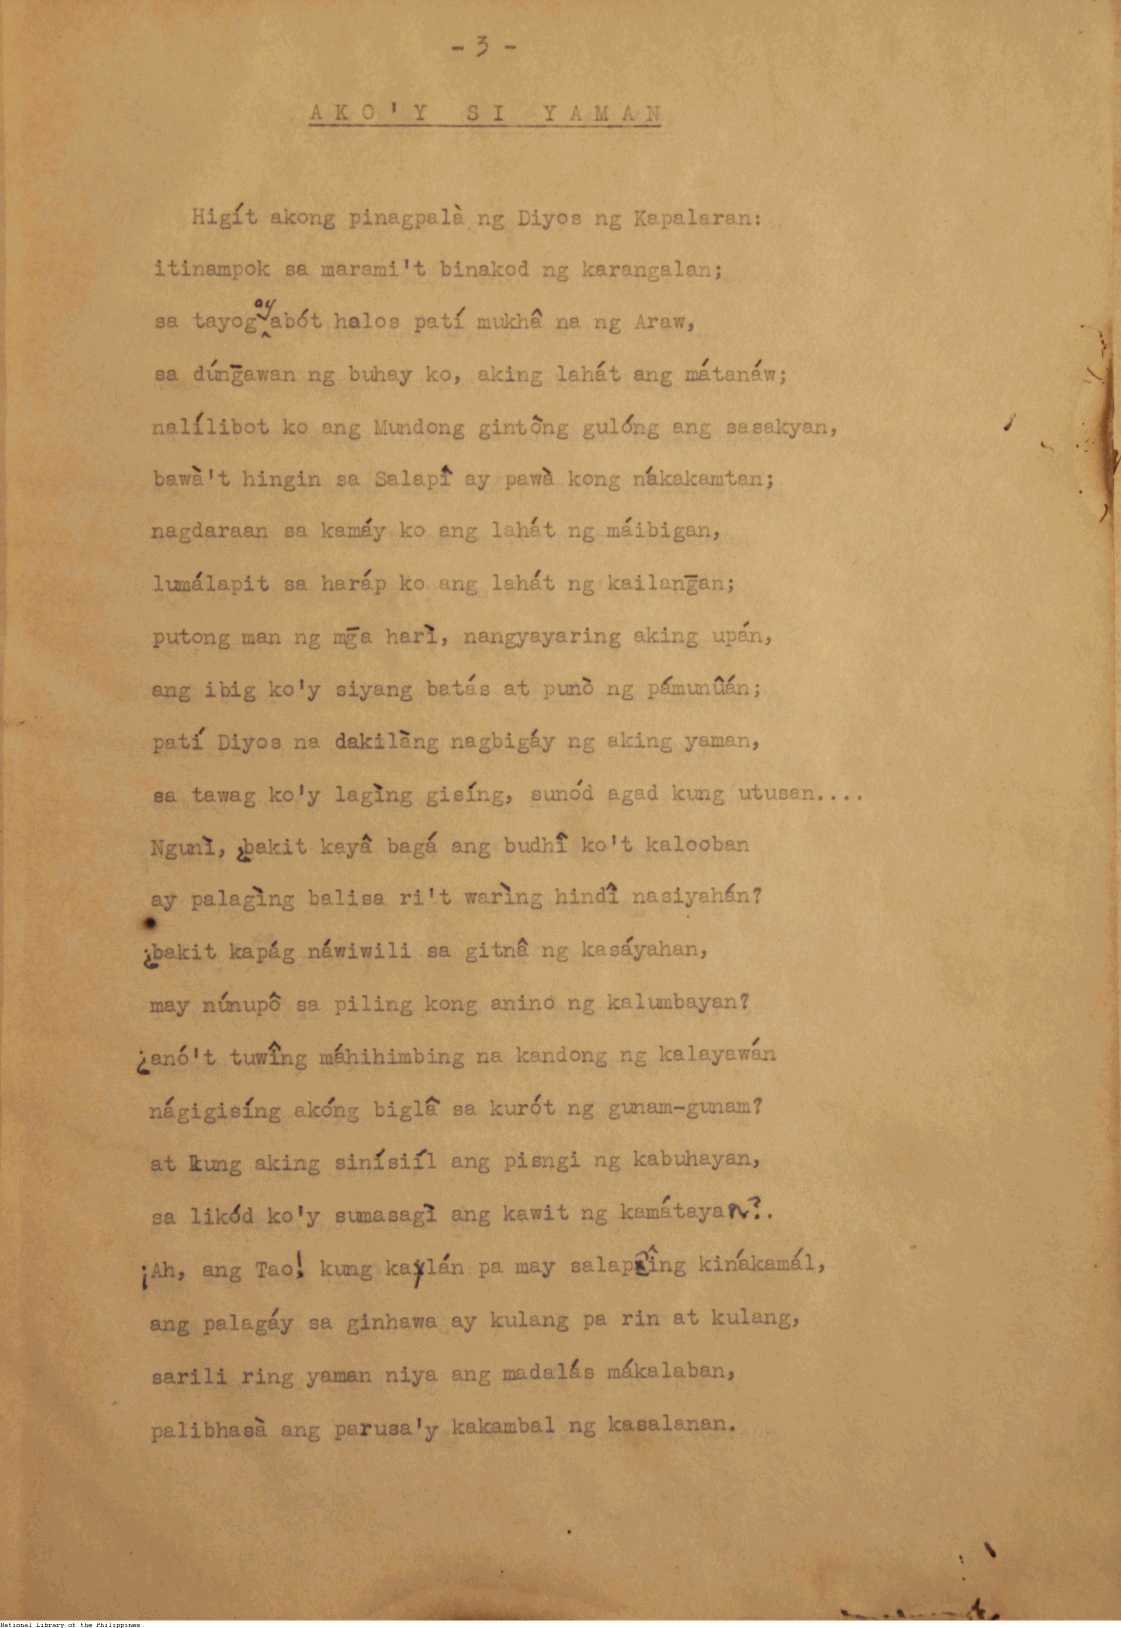 - 3 -
AKO'Y SI YAMAN
Higít akong pinagpalà ng Diyos ng Kapalaran:
itinampok sa marami't binakod ng karangalan;
sa tayog ay abót halos patí mukhâ na ng Araw,
sa dúng̅awan ng buhay ko, aking lahát ang mátanáw;
nalílibot ko ang Mundong gintông gulóng ang sasakyan,
bawà't hingin sa Salapî ay pawà kong nákakamtan;
nagdaraan sa kamáy ko ang lahát ng máibigan,
lumálapit sa haráp ko ang lahát ng kailang̅an;
putong man ng mg̅a harì, nangyayaring aking upán,
ang ibig ko'y siyang batás at punò ng pámunûán;
patí Diyos na dakilàng nagbigáy ng aking yaman,
sa tawag ko'y lagìng gisíng, sunód agad kung utusan....
Ngunì, ¿bakit kayâ bagá ang budhî ko't kalooban
ay palagìng balisa ri't warìng hindî nasiyahán?
¿bakit kapág náwiwili sa gitnâ ng kasáyahan,
may núnupô sa piling kong anino ng kalumbayan?
¿anó't tuwîng máhihimbing na kandong ng kalayawán
nágigisíng akóng biglâ sa kurót ng gunam-gunam?
at kung aking sinísiíl ang pisngi ng kabuhayan,
sa likód ko'y sumasagì ang kawit ng kamátayan?.
¡Ah, ang Tao! kung kaylán pa may salapîng kinákamál,
ang palagáy sa ginhawa ay kulang pa rin at kulang,
sarili ring yaman niya ang madalás mákalaban,
palibhasà ang parusa'y kakambal ng kasalanan.
National Library of the Philippines